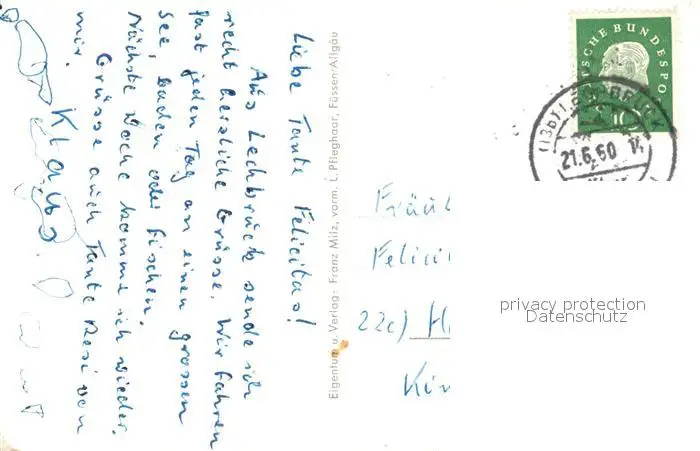 Liebe Tante Felicitas!
Aus Lechbruck sende ich
recht herzliche Grüsse. Wir fahren
fast jeden Tag an einen grossen
See, baden oder fischen.
Nächste Woche komme ich wieder.
Grüsse auch Tante Resi von
mir.
Klaus.
Eigentum u. Verlag: Franz Milz, vorm. L. Pfleghaar, Füssen/Allgäu
DEUTSCHE BUNDESPO
10
(13b) LECHBRUCK
21.6.60
Fräul
Felici
22c) H
Kö
privacy protection
Datenschutz